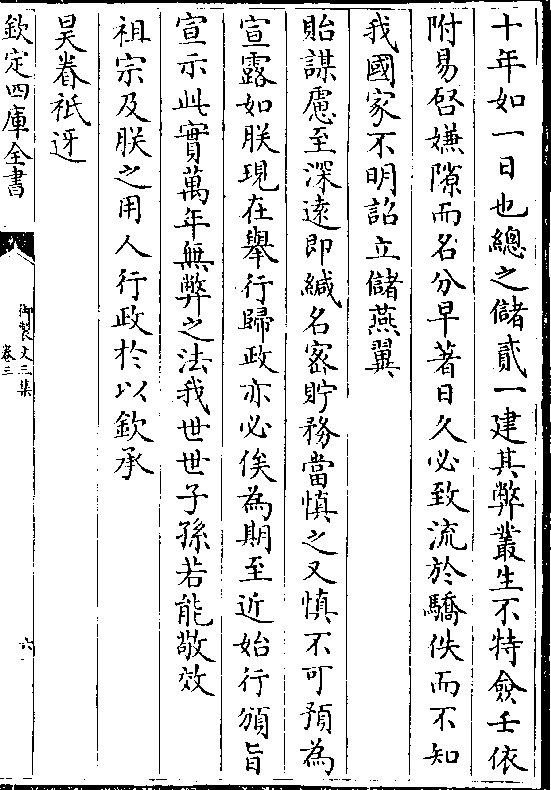 十年如一日也總之儲貳一建其弊叢生不特僉壬依
附易啓嫌隙而名分早著日久必致流於驕佚而不知
我國家不明詔立儲燕翼
貽謀慮至深遠即緘名密貯務當慎之又慎不可預為
宣露如朕現在舉行歸政亦必俟為期至近始行頒旨
宣示此實萬年無弊之法我世世子孫若能敬效
祖宗及朕之用人行政於以欽承
昊眷祇迓
欽定四庫全書
御製文三集
卷三
六